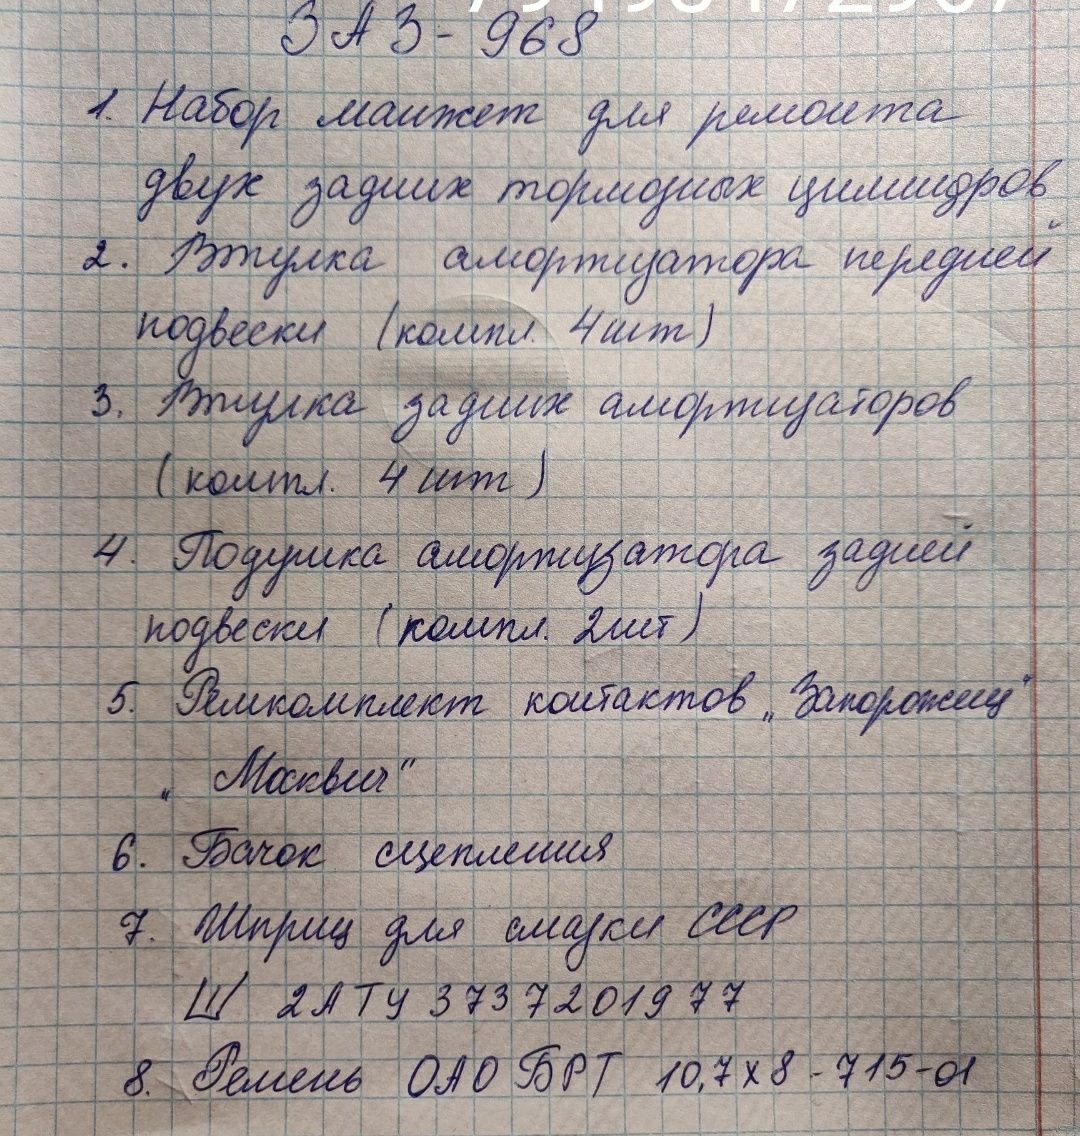 ЗАЗ-968
1. Набор манжет для ремонта
двух задних тормозных цилиндров
2. Втулка амортизатора передней
подвески (компл. 4шт)
3. Втулка задних амортизаторов
(компл. 4шт)
4. Подушка амортизатора задней
подвески (компл. 2шт)
5. Ремкомплект контактов „Запорожец"
„Москвич"
6. Бачок сцепления
7. Шприц для смазки СССР
Ш 2АТУ 3737201977
8. Ремень ОАО БРТ 10,7х8-715-01